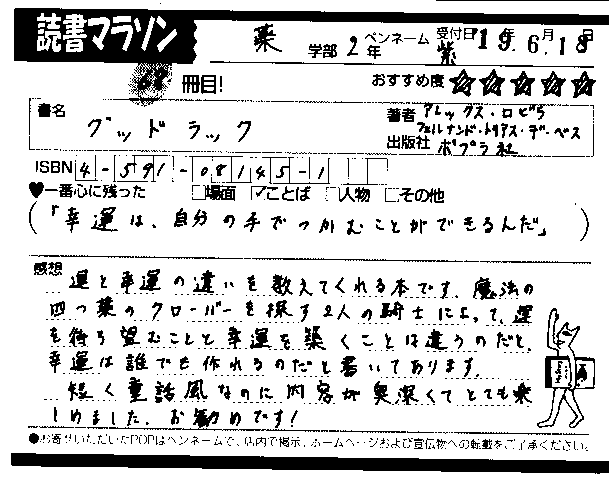 読書マラソン
薬 学部 2年 ペンネーム 紫 受付日 '19年6月18日
冊目! おすすめ度 ☆☆☆☆☆
書名 グッドラック
著者 アレックス・ロビラ
フェルナンド・トリアス・デ・ベス
出版社 ポプラ社
ISBN 4-591-08145-1
♥一番心に残った □場面 ☑ことば □人物 □その他
(「幸運は、自分の手でつかむことができるんだ」)
感想
運と幸運の違いを教えてくれる本です。魔法の
四つ葉のクローバーを探す2人の騎士によって、運
を待ち望むことと幸運を築くことは違うのだと、
幸運は誰でも作れるのだと書いてあります。
短く童話風なのに内容が奥深くてとても楽
しめました。お勧めです!
●お寄せいただいたPOPはペンネームで、店内で掲示、ホームページおよび宣伝物への転載をご了承ください。